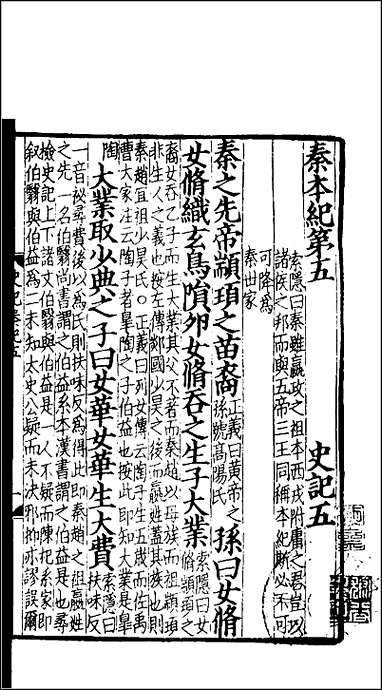 秦本紀第五 史記五
索隱曰秦雖嬴政之祖本西戎附庸之君豈以
諸侯之邦而與五帝三王同稱本紀斷必不可
可降為
秦世家
秦之先帝顓頊之苗裔 正義曰黃帝之
孫號高陽氏 孫曰女脩
女脩織玄鳥隕卵女脩吞之生子大業 索隱曰女
脩顓頊之
裔女吞鳦子而生大業其父不著而秦趙以母族而祖顓頊
非生人之義也按左傳郯國少昊之後而嬴姓蓋其族也則
秦趙宜祖少昊氏○正義曰列女傳云陶子生五歲而佐禹
曹大家注云陶子者皋陶之子伯益也按此即知大業是皋
陶 大業取少典之子曰女華女華生大費 索隱曰
扶味反
一音祕尋費後以為氏則扶味反為得此即秦趙之祖嬴姓
之先一名伯翳尚書謂之伯益系本漢書謂之伯益是也尋
檢史記上下諸文伯翳與伯益是一人不疑而陳杞系家即
敘伯翳與伯益為二未知太史公疑而未決邪抑亦謬誤爾